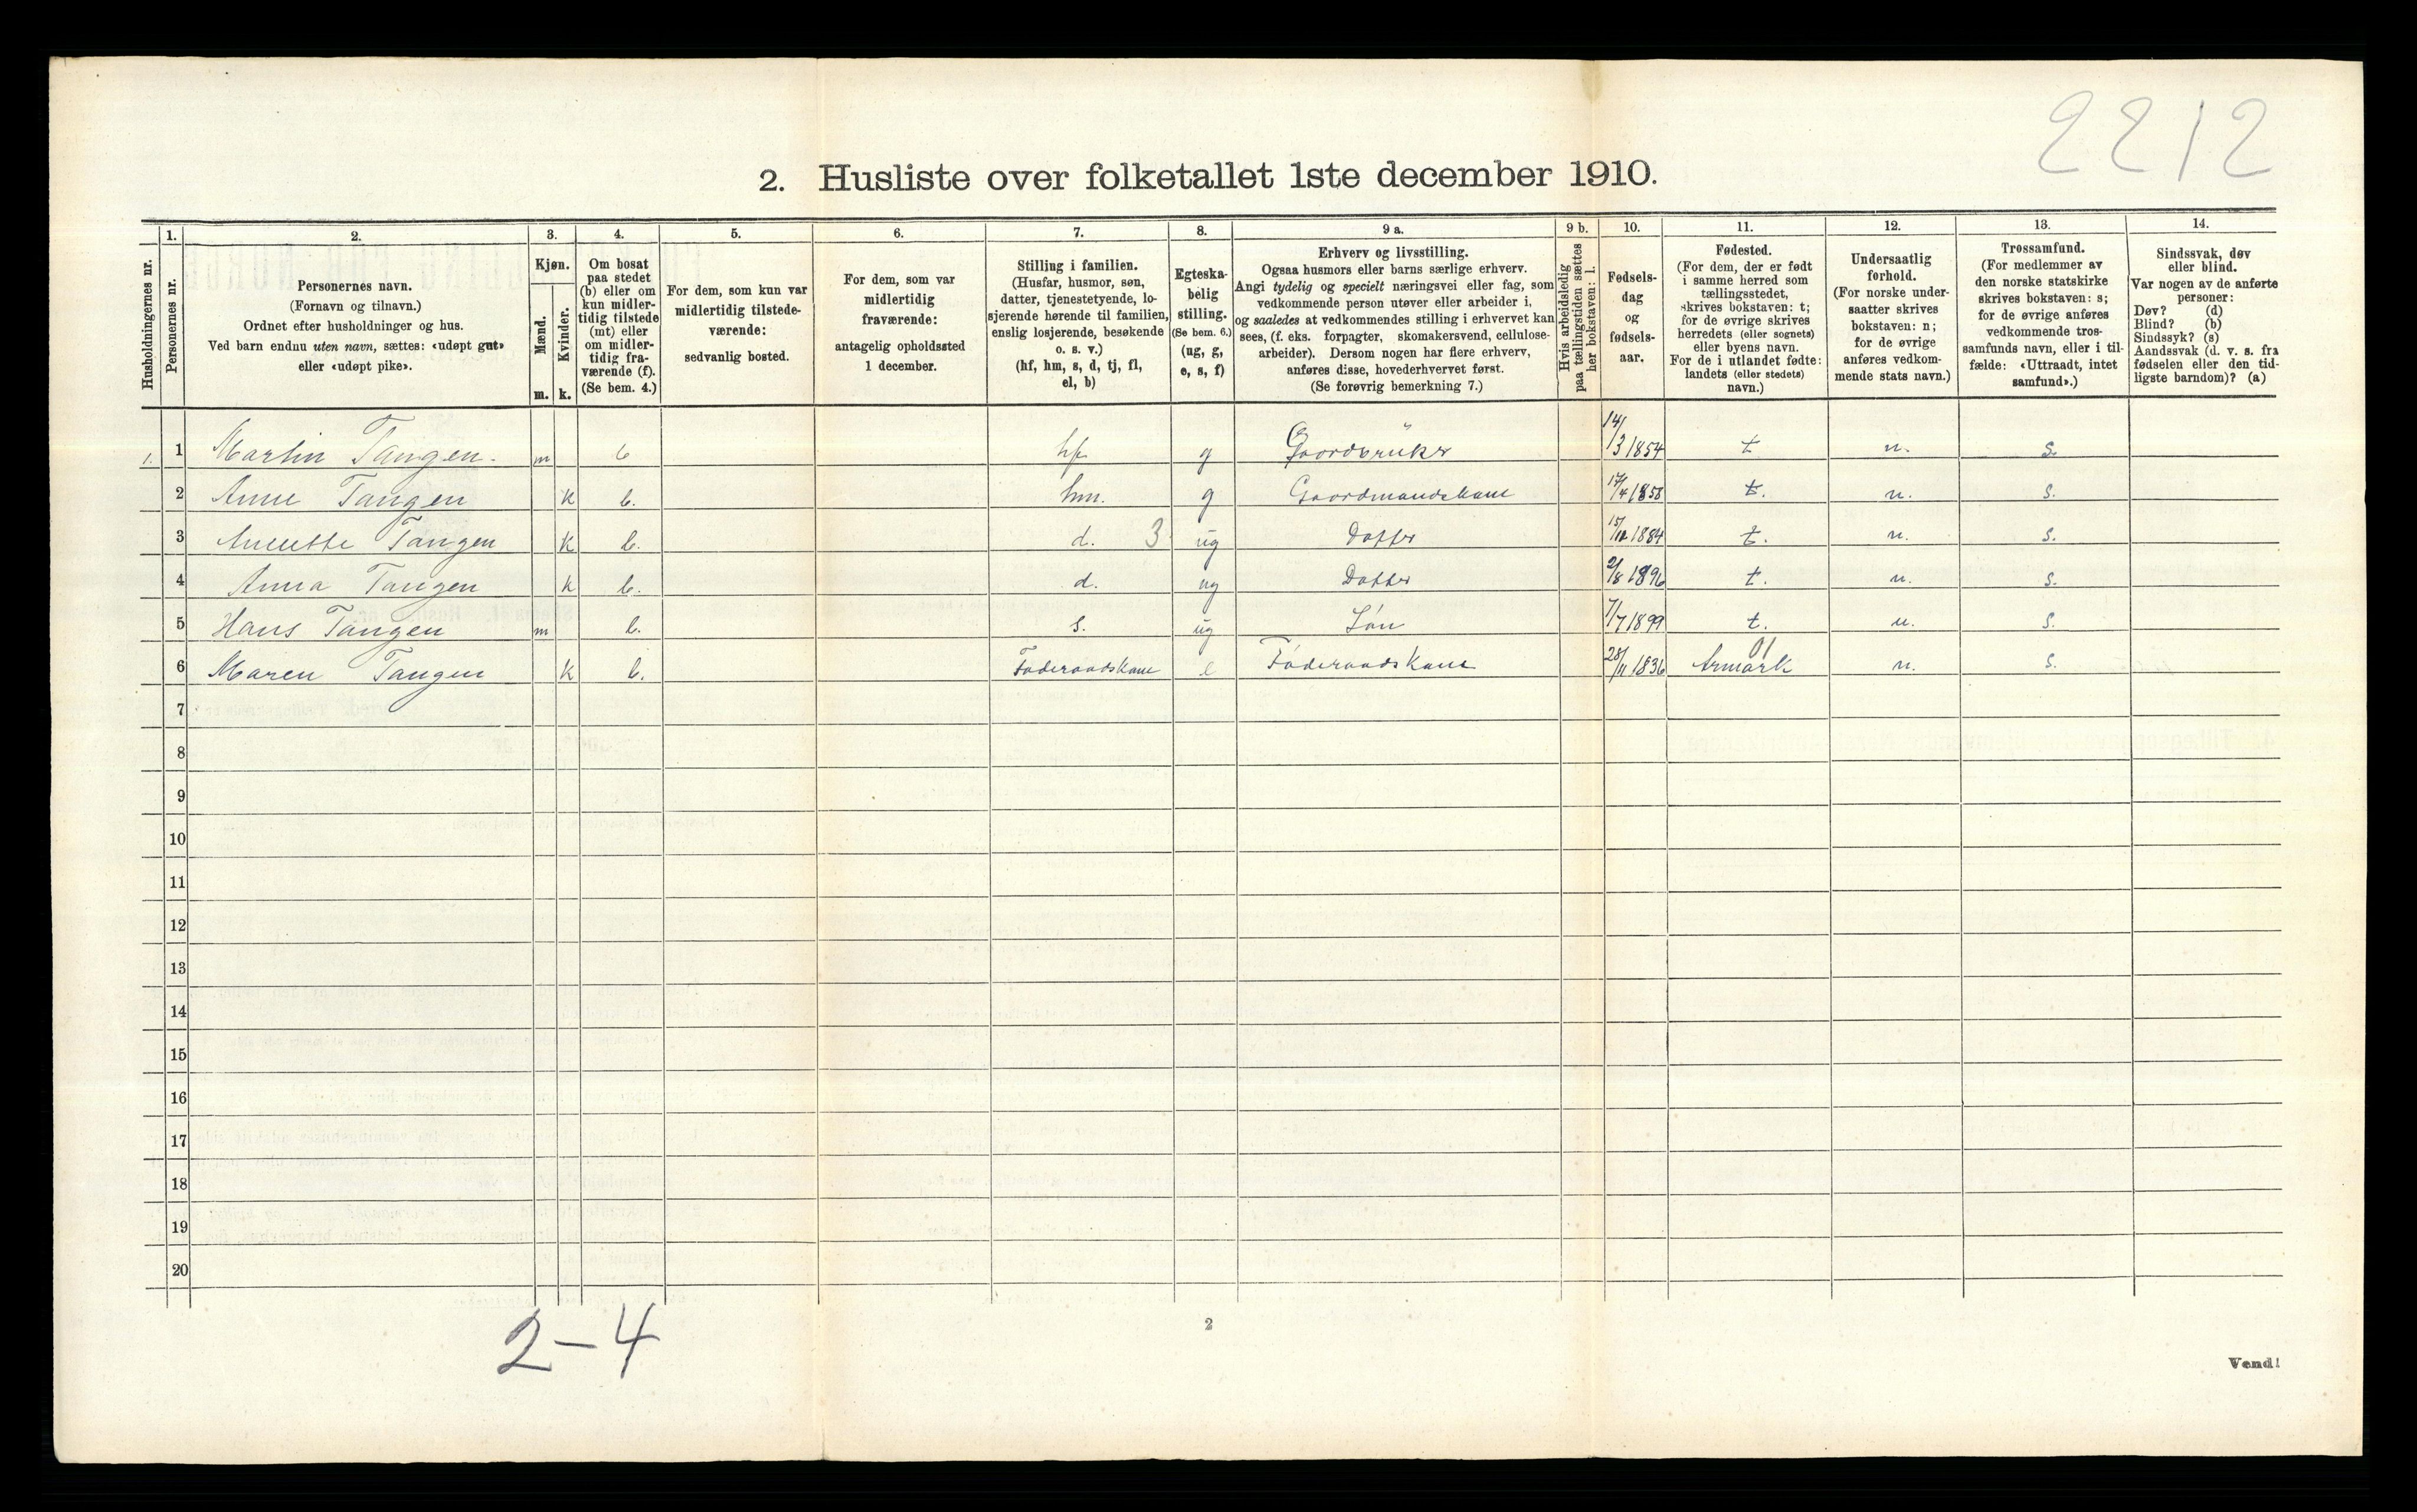 2212
2. Husliste over folketallet 1ste december 1910.
Husholdningernes nr.
1.
Personernes nr.
2.
Personernes navn.
(Fornavn og tilnavn.)
Ordnet efter husholdninger og hus.
Ved barn endnu uten navn, sættes: «udøpt gut»
eller «udøpt pike».
3.
Kjøn.
Mænd.
Kvinder.
m. k.
4.
Om bosat
paa stedet
(b) eller om
kun midler-
tidig tilstede
(mt) eller
om midler-
tidig fra-
værende (f).
(Se bem. 4.)
5.
For dem, som kun var
midlertidig tilstede-
værende:
sedvanlig bosted.
6.
For dem, som var
midlertidig
fraværende:
antagelig opholdssted
1 december.
7.
Stilling i familien.
(Husfar, husmor, søn,
datter, tjenestetyende, lo-
sjerende hørende til familien,
enslig losjerende, besøkende
o. s. v.)
(hf, hm, s, d, tj, fl,
el, b)
8.
Egteska-
belig
stilling.
(Se bem. 6.)
(ug, g,
e, s, f)
9 a.
Erhverv og livsstilling.
Ogsaa husmors eller barns særlige erhverv.
Angi tydelig og specielt næringsvei eller fag, som
vedkommende person utøver eller arbeider i,
og saaledes at vedkommendes stilling i erhvervet kan
sees, (f. eks. forpagter, skomakersvend, cellulose-
arbeider). Dersom nogen har flere erhverv,
anføres disse, hovederhvervet først.
(Se forøvrig bemerkning 7.)
9 b.
Hvis arbeidsledig
paa tællingstiden sættes
her bokstaven: l.
10.
Fødsels-
dag
og
fødsels-
aar.
11.
Fødested.
(For dem, der er født
i samme herred som
tællingsstedet,
skrives bokstaven: t;
for de øvrige skrives
herredets (eller sognets)
eller byens navn.
For de i utlandet fødte:
landets (eller stedets)
navn.)
12.
Undersaatlig
forhold.
(For norske under-
saatter skrives
bokstaven: n;
for de øvrige
anføres vedkom-
mende stats navn.)
13.
Trossamfund.
(For medlemmer av
den norske statskirke
skrives bokstaven: s;
for de øvrige anføres
vedkommende tros-
samfunds navn, eller i til-
fælde: «Uttraadt, intet
samfund».)
14.
Sindssvak, døv
eller blind.
Var nogen av de anførte
personer:
Døv? (d)
Blind? (b)
Sindssyk? (s)
Aandssvak (d. v. s. fra
fødselen eller den tid-
ligste barndom)? (a)
1. 1 Martin Tangen. m b hf. g Gaordbrüker 14/3 1854 t n. s.
2 Anne Tangen k b. hm. g Gaordmandskane 17/4 1858 t. n. s.
3 Annette Tangen k b. d. 3 ug Datter 15/12 1884 t. n. s.
4 Anna Tangen k b. d. ug Datter 2/8 1896 t. n. s.
5 Hans Tangen m b. s. ug Søn 7/7 1899 t. n. s.
6 Maren Tangen k b. Føderaadskane e Føderaadskane 28/11 1836 Armark 01 n. s.
7
8
9
10
11
12
13
14
15
16
17
18
19
20
2-4
2
Vend!